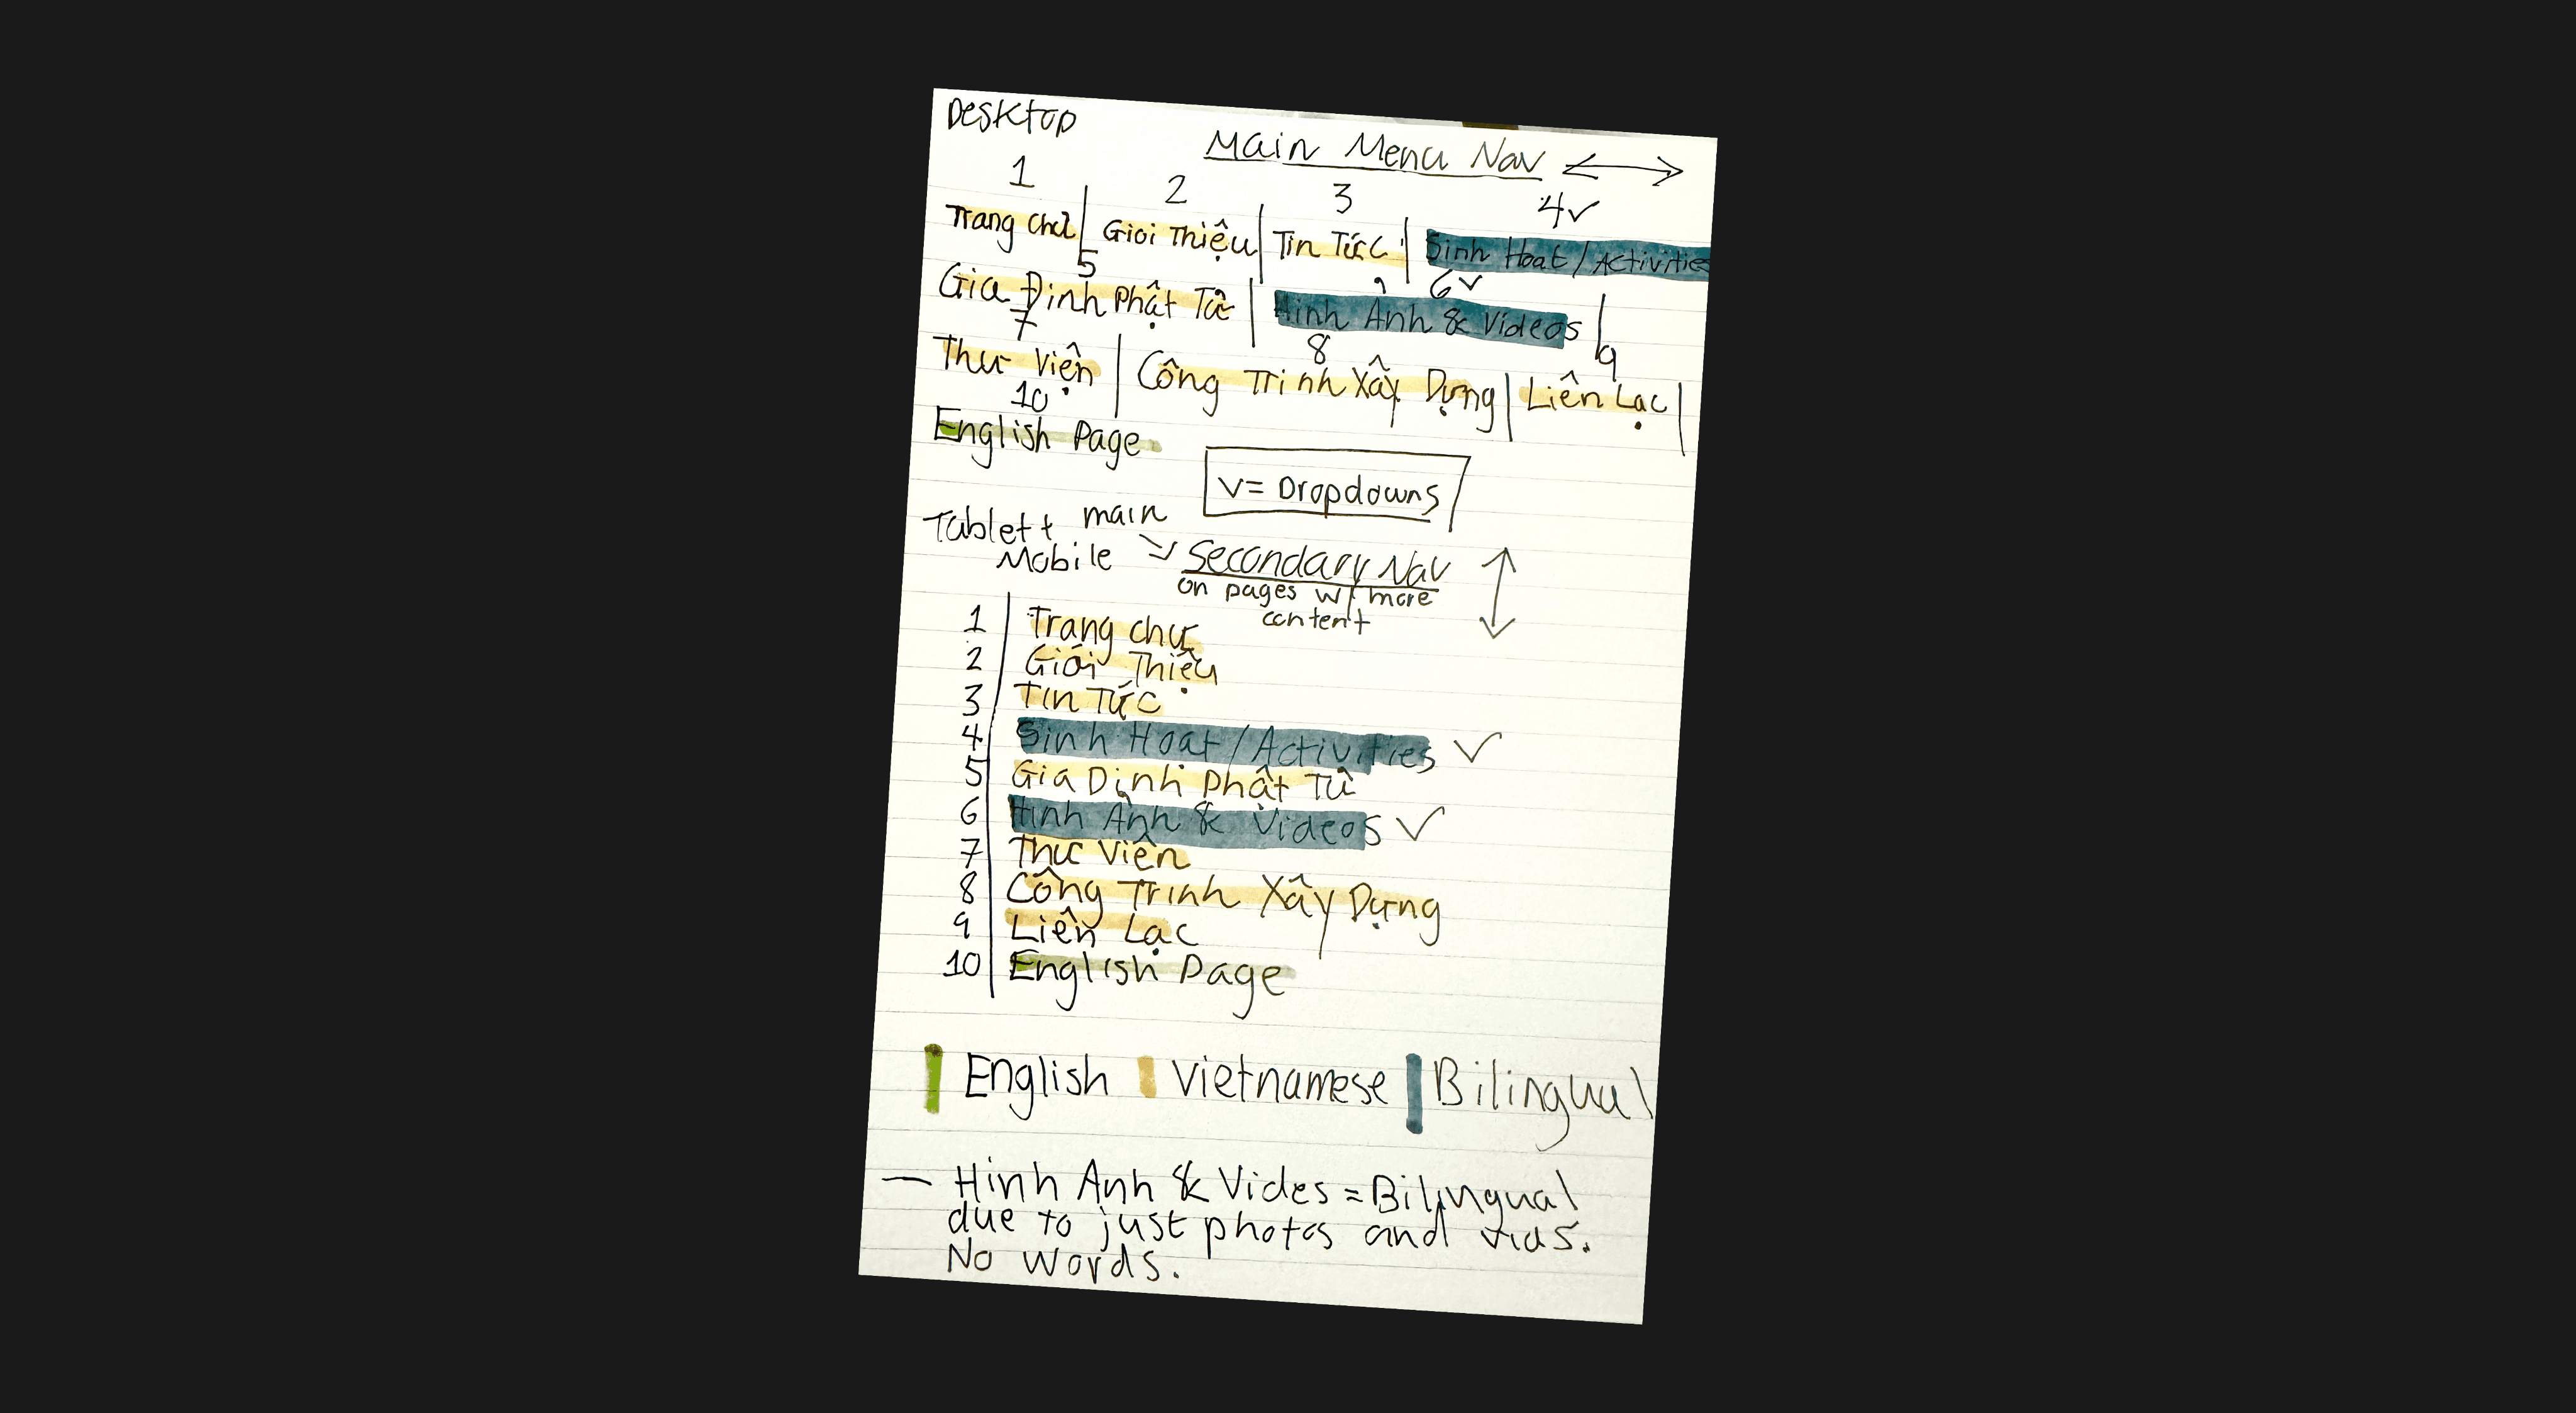 Desktop
Main Menu Nav ↔
1 2 3 4 v
Trang chủ | Giơi Thiệu | Tin Tức | Sinh Hoat / Activities
5 6 v
Gia Đình Phật Tử | Hình Ảnh & Videos |
7 8 9
Thư Viện | Công Trinh Xây Dựng | Liên Lạc |
10
English Page
v = Dropdowns
Tablet + main
Mobile Secondary Nav ↕
on pages w/ more
content
1 Trang chư
2 Giới Thiệu
3 Tin Tức
4 Sinh Hoat / Activities ✓
5 Gia Dinh Phật Tử
6 Hinh Ảnh & Videos ✓
7 Thư Viện
8 Công Trinh Xây Dựng
9 Liên Lạc
10 English Page
English Vietnamese Bilingual
— Hinh Anh & Vides = Bilingual
due to just photos and vids.
No words.